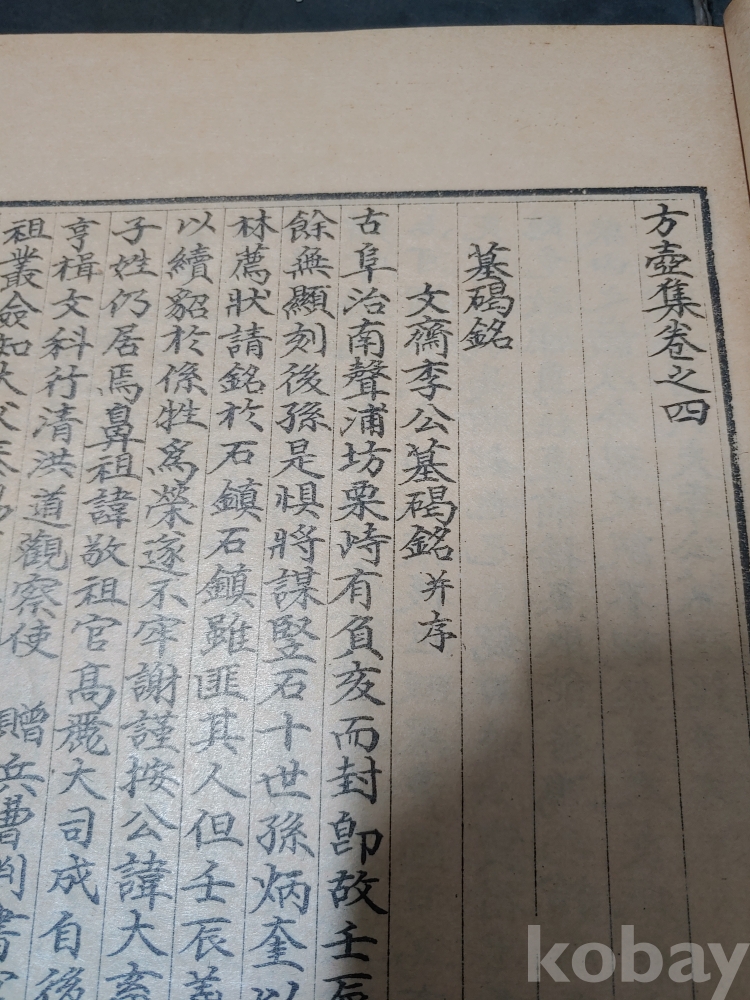 方壺集卷之四
墓碣銘
文齋李公墓碣銘 并序
古阜治南聲浦坊栗峙有負亥而封卽故壬辰
餘無顯刻後孫是惧將謀竪石十世孫炳奎以
林薦狀請銘於石鎮石鎮雖匪其人但壬辰義
以續貂於係牲爲榮遂不牢謝謹按公諱大
子姓仍居焉鼻祖諱敬祖官高麗大司成自後
亨楫文科行清洪道觀察使 贈兵曹判書
祖叢僉知
kobay